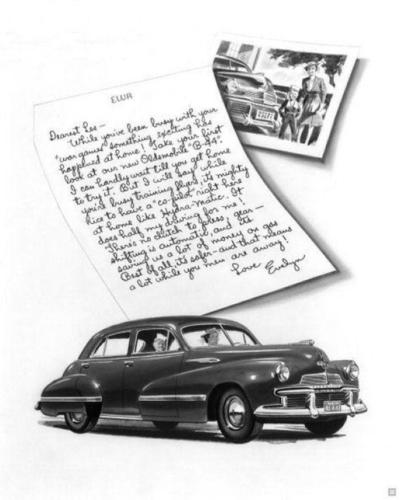 EWR
Dearest Lee —
While you've been busy with your
"war games" something exciting has
happened at home! Take your first
look at our new Oldsmobile "B-44".
I can hardly wait till you get home
to try it. But I will say while
you're busy training flyers, it's mighty
nice to have a "co-pilot" right here
at home like Hydra-Matic. It
does half my driving for me!
There's no clutch to press; gear-
shifting is automatic, and it's
saving us a lot of money on gas
Best of all its safer — and that means
a lot while you men are away!
Love Evelyn